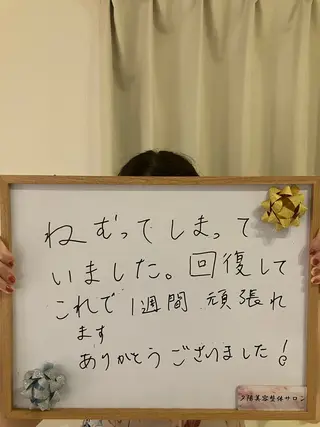 ねむってしまって
いました。回復して
これで1週間 頑張れ
ます
ありがとうございました!
夕陽美容整体サロン